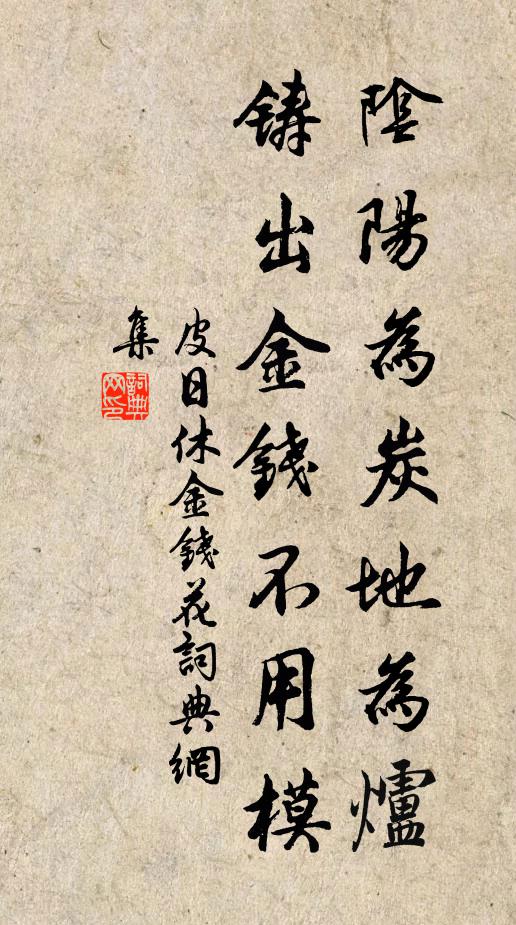 陰陽為炭地為爐
鋳出金錢不用模
皮日休金錢花詞典網
集
詞典
网印